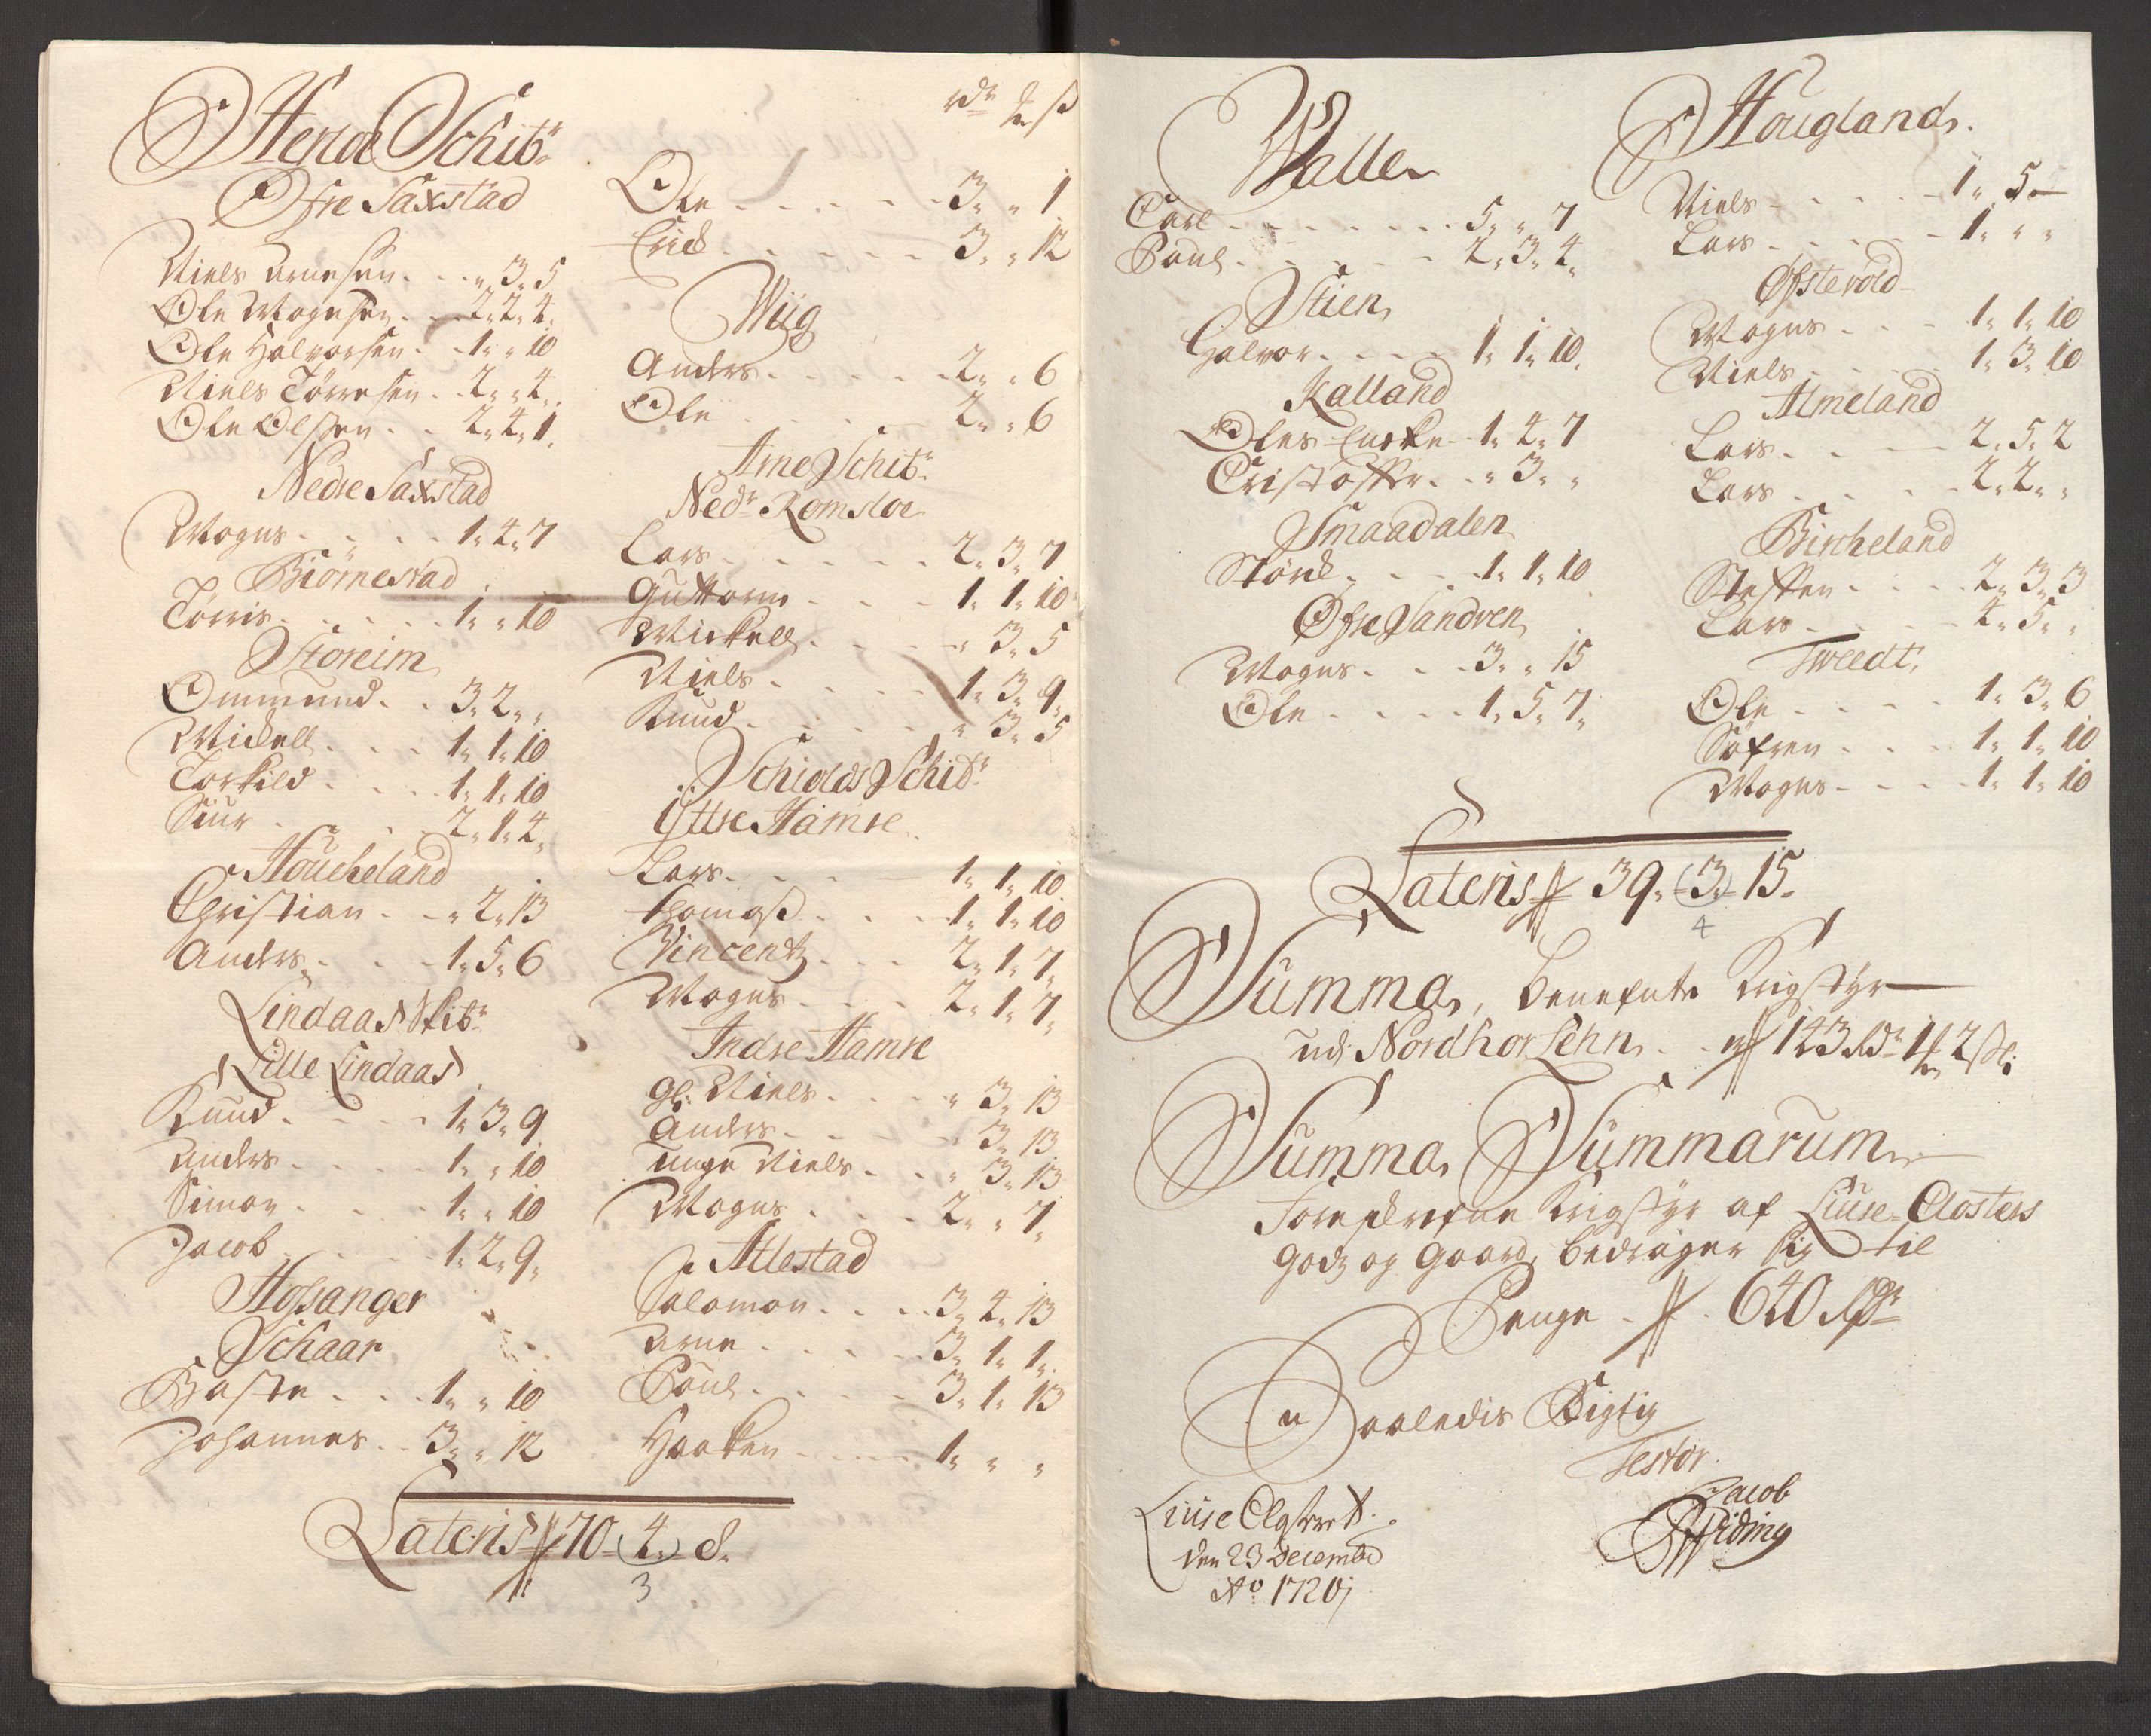 Herlöe Schibr.
Öfre Saxstad
Niels Arnesen . . „ 3„ 5
Ole Mogensen . . 2„ 2„ 4„
Ole Halvorsen . . 1„ „ 10
Niels Törresen . . 2„ „ 4„
Ole Olssen . . 2„ 4„ 1„
Nedre Saxstad
Mogns . . . . 1„ 4„ 7
Biörnestad
Törris . . . . . 1„ „ 10
Storeim
Ommund . . 3„ 2„ „
Mickell . . . 1„ 1„ 10
Torkild . . . . 1„ 1„ 10
Siur . . . . . 2„ 1„ 4„
Houcheland
Christian . . „ 2„ 13
Anders . . . 1„ 5„ 6
Lindaas Skibr.
Lille Lindaas
Knud . . . . 1„ 3„ 9
Anders . . . . 1„ „ 10
Simon . . . . 1„ „ 10
Jacob . . . . 1„ 2„ 9„
Hosanger
Schaar
Baste . . . 1„ „ 10
Johannes . . 3„ „ 12
rdr ß
Ole . . . . . 3„ „ 1
Erick . . . . . 3„ „ 12
Wiig
Anders . . . . . 2„ „ 6
Ole . . . . . 2„ „ 6
Arne Schibr.
Nedr Romsloe
Lars . . . . . 2„ 3„ 7
Guttorm . . . 1„ 1„ 10
Mickell . . . . „ 3„ 5
Niels . . . . 1„ 3„ 9„
Knud . . . . . „ 3„ 5
Schiolds Schibr
Yttre Hamre
Lars . . . . 1„ 1„ 10
Thomaß . . . . 1„ 1„ 10
Vincentz . . . 2„ 1„ 7„
Mogns . . . . 2„ 1„ 7„
Indre Hamre
gl: Niels . . . . „ 3„ 13
Anders . . . . „ 3„ 13
unge Niels . . . „ 3„ 13
Mogns . . . . 2„ „ 7„
Allestad
Salomon . . . 3„ 4„ 13
Arne . . . . . 3„ 1„ 1„
Poul . . . . . 3„ 1„ 13
Haaken . . . . 1„ „ „
Lateris 70 (4.) 8.
3
Walle
Carl . . . . . . . 5„ „ 7
Poul . . . . . 2„ 3„ 4„
Stien
Halvor . . . . 1„ 1„ 10„
Kalland
Oles Encke 1„ 4„ 7
Cristoffer . . „ 3„ „
Smaadalen
Störck . . . . 1„ 1„ 10
Öfre Sandven
Mogns . . . 3„ „ 15
Ole . . . . 1„ 5„ 7„
Hougland
Niels . . . . . 1„ 5 —
Lars . . . . . 1„ „ „
Ofstevold
Mogns . . . 1„ 1„ 10
Niels . . . . 1„ 3„ 10
Almeland
Lars . . . . 2„ 5„ 2
Lars . . . . 2„ 2„ „
Bircheland
Steffen . . . . 2„ 3„ 3
Lars . . . . . 4„ 5„ „
Tweedt
Ole . . . . 1„ 3„ 6
Söfren . . . 1„ 1„ 10
Mogns . . . . 1„ 1„ 10
Lateris 39„ (3.) 15„
4
Summa, benefnte Krigstyr
udj Nordhorlehn . . 143 Rdr 1 2 ß:
Summa Summarum
Foreskrefne Krigstyr af Liuse Closters
Godz og Gaard, bedrager sig til
Penge . . 640 Rdr
Saaledis Rigtig
Testor.
Liuse Closter
den 23 Decembr
Ao 1720
Jacob
Widing